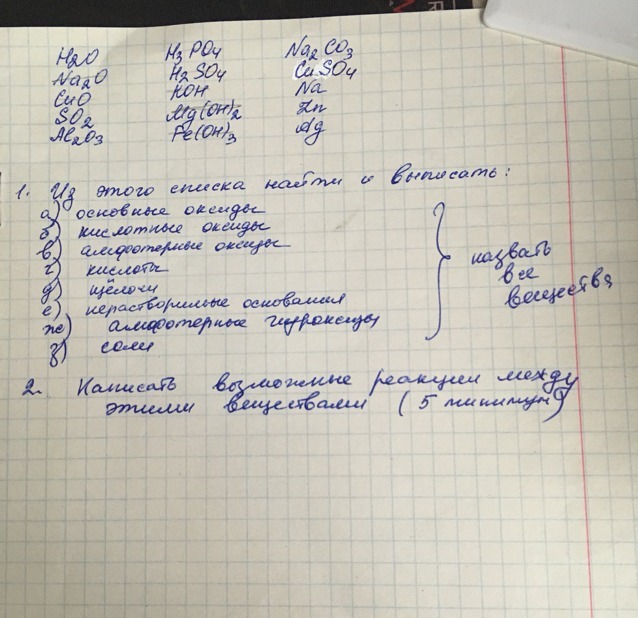 H₂O H₃PO₄ Na₂CO₃
Na₂O H₂SO₄ CuSO₄
CuO KOH Na
SO₂ Mg(OH)₂ Zn
Al₂O₃ Fe(OH)₃ Ag
1. Из этого списка найти и выписать:
а) основные оксиды
б) кислотные оксиды
в) амфотерные оксиды
г) кислоты
д) щёлочи
е) нерастворимые основания
ж) амфотерные гидроксиды
з) соли
назвать
все
вещества
2. Написать возможные реакции между
этими веществами (5 минимум)